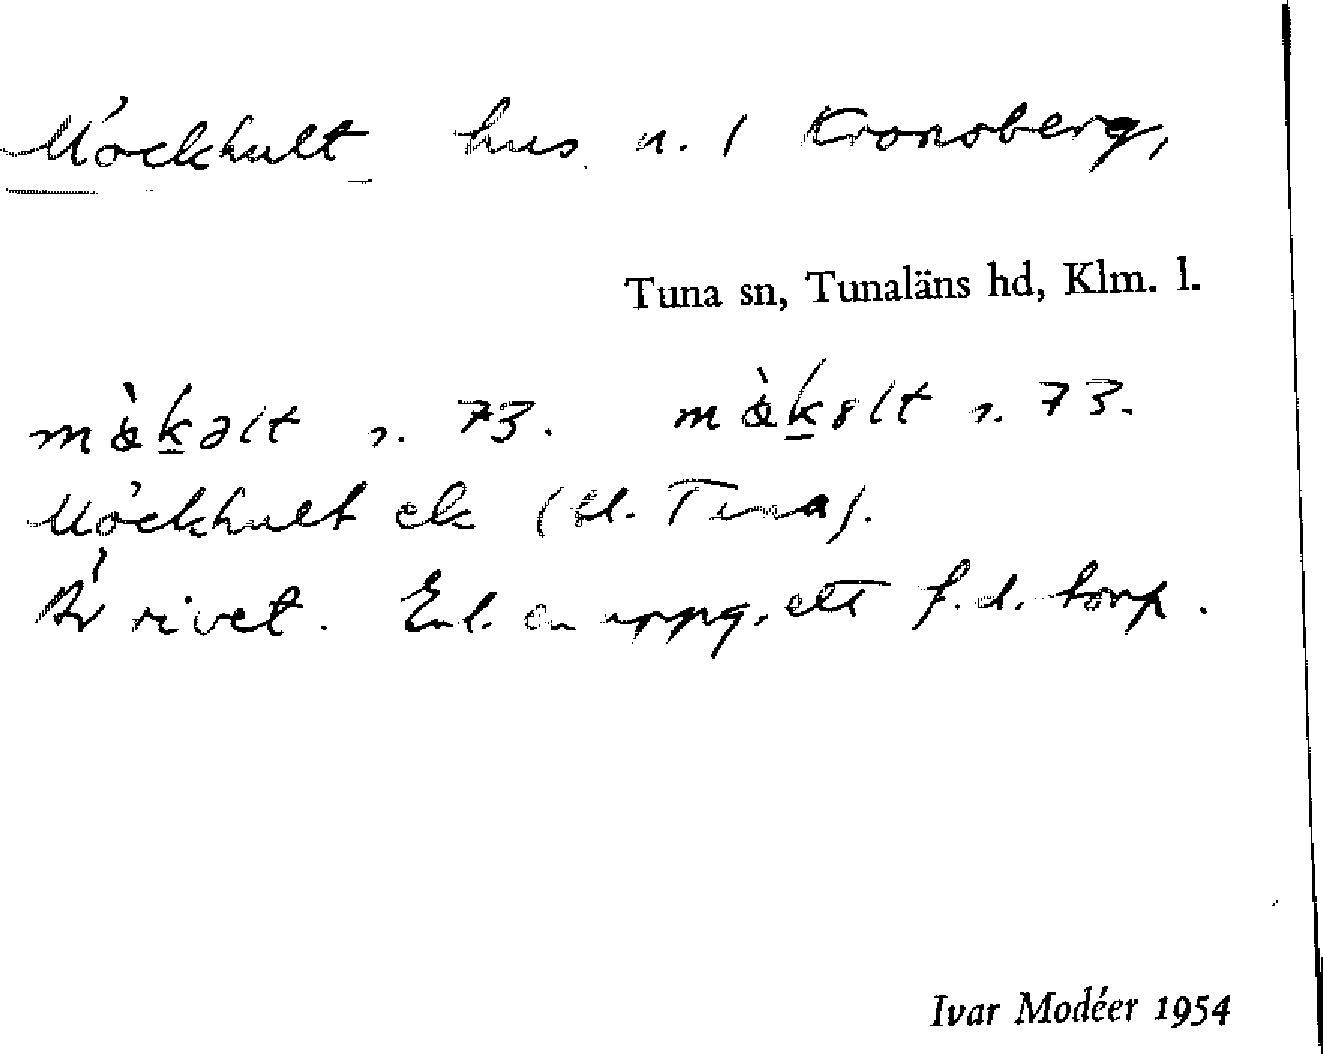 Möckhult hus n. 1 Kronsberg,
Tuna sn, Tunaläns hd, Klm. l.
s. 73. s. 73.
Möckhult ek (bl. Tuna).
Är rivet. Enl. en uppg. ett f.d. torp.
Ivar Modéer 1954